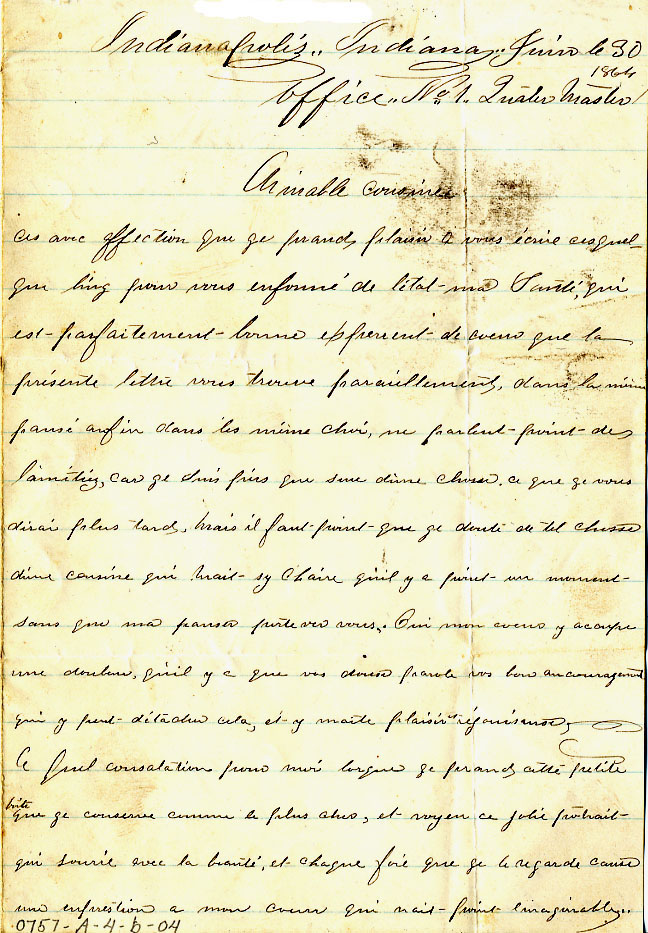 Indianapolis,, Indiana,, Juin le 30
1864
Office,, No 1. Quater Master
Aimable cousine
ces avec affection que ge prands plaisir a vous écrire cesquel-
que ling pour vous enformé de létat ma Santé, qui
est parfaitement bonne espérent de coeur que la
présente lettre vous trouve paraillement, dans la même
pansé anfin dans les même choi, ne parlent point de
l'amitiéz, car ge suis plus que sure dime chose. ce que ge vous
dirai plus tard, Mais il faut point que ge doute de tel chosse
dime cousine qui mait sy Chaire quil y a point un moment
sans que ma pansé porte ver vous,. Oui mon coeur y acoupe
une douleur, quil y a que vos douse parole vos bon ancouragement
qui y peut détacher cela, et y maite plaisir réjouisense,
O Quel consalation pour moi lorque ge prands cette petite
boite que ge conserve comme le plus cher, et voyen ce jolie potrait
qui sourie avec la beauté, et chaque foié que ge le regarde cause
une enprestion a mon coeur qui nait point t'imaginable,.
0757-A-4-b-04